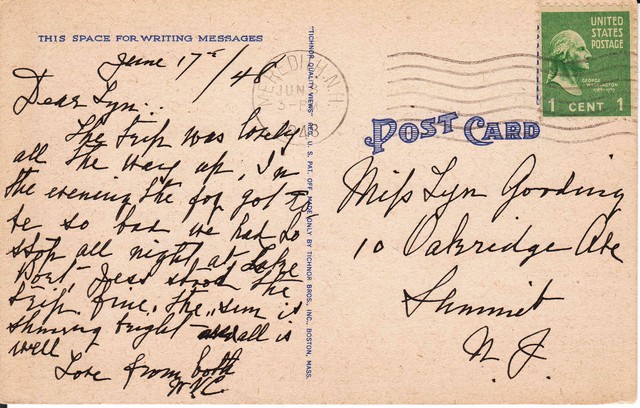 THIS SPACE FOR WRITING MESSAGES
June 17th/48
Dear Lyn..
The trip was lovely
all the way up, In
the evening the fog got to
be so bad we had to
stop all night at Lake
Port, Jess stood the
trip fine. The sun is
shining bright and all is
well
Love from both
"TICHNOR QUALITY VIEWS" REG. U. S. PAT. OFF. MADE ONLY BY TICHNOR BROS., INC., BOSTON, MASS.
MEREDITH, N.H.
JUN
3-PM
48
UNITED
STATES
POSTAGE
GEORGE
WASHINGTON
1 CENT 1
POST CARD
Miss Lyn Gooding
10 Oakridge Ave
Summit
N. J.